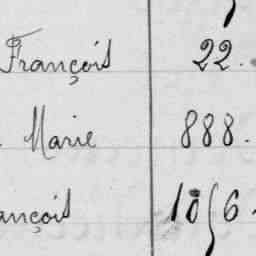 François 22.
Marie 888.
ançois